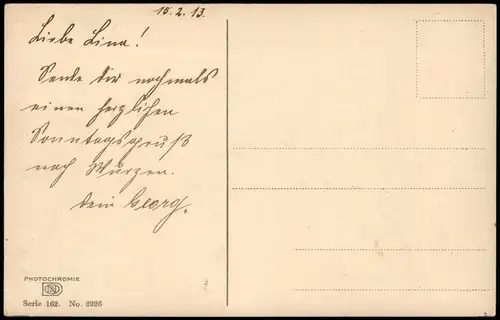 15.2.13.
Liebe Lina!
Sende dir nochmals
einen herzlichen
Sonntagsgruß
nach Wurzen.
dein Georg.
PHOTOCHROMIE
Serie 162. No. 2926